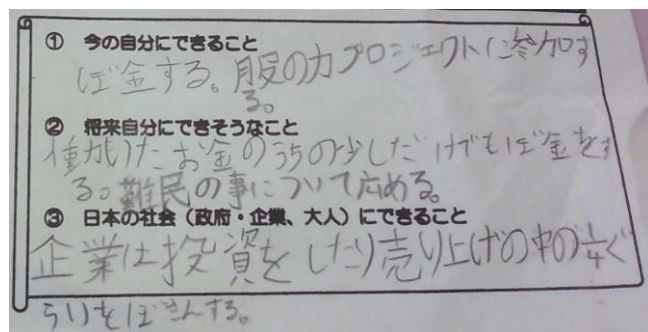 ① 今の自分にできること
ぼ金する。服の力プロジェクトに参加す
る。
② 将来自分にできそうなこと
働かけたお金のうちの少しだけでもぼ金をす
る。難民の事について広める。
③ 日本の社会（政府・企業、大人）にできること
企業は投資をしたり売り上げの中の1/4ぐ
らいをぼきんする。